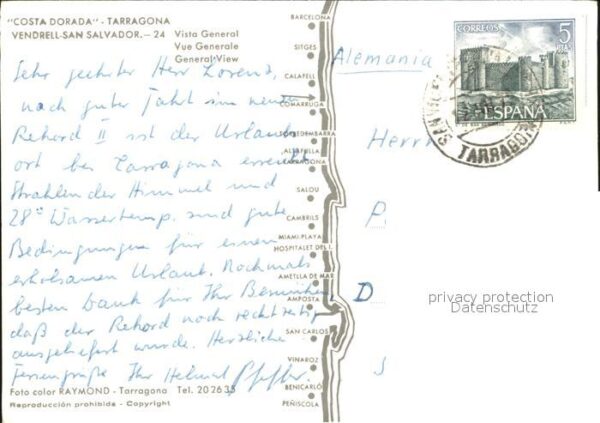 "COSTA DORADA" - TARRAGONA
VENDRELL-SAN SALVADOR.-24 Vista General
Vue Generale
General View
Sehr geehrter Herr Lorenz,
nach guter Fahrt im neuen
Rekord II ist der Urlaubs
ort bei Tarragona erreicht.
Strahlender Himmel und
28° Wassertemp. sind gute
Bedingungen für einen
erholsamen Urlaub. Nochmals
besten Dank für Ihr Bemühen,
daß der Rekord noch rechtzeitig
ausgeliefert wurde. Herzliche
Feriengrüße Ihr Helmut Pfeffer.
Foto color RAYMOND - Tarragona Tel. 202635
Reproducción prohibida - Copyright
BARCELONA
SITGES
CALAFELL
COMARRUGA
TORREDEMBARRA
ALTAFULLA
TARRAGONA
SALOU
CAMBRILS
MIAMI-PLAYA
HOSPITALET DEL I.
AMETLLA DE MAR
AMPOSTA
SAN CARLOS
VINAROZ
BENICARLÓ
PEÑISCOLA
Alemania
Herrn
P.
D
S
CORREOS
5
PTAS
ESPAÑA
TARRAGONA
privacy protection
Datenschutz